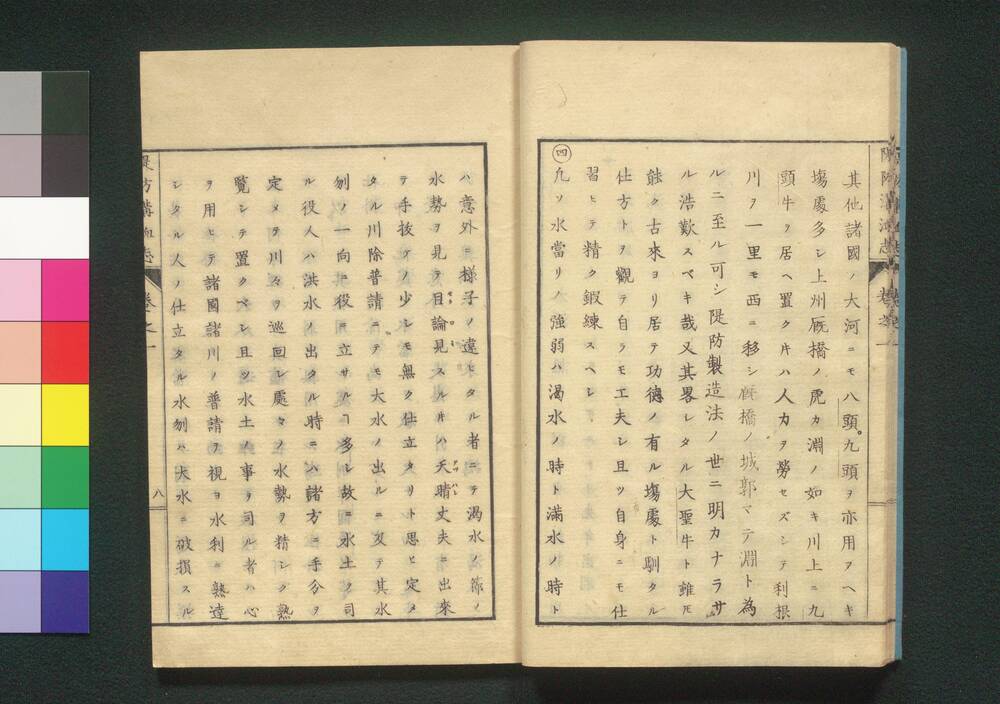 其他諸國ノ大河ニモ八頭。九頭ヲ亦用ヲヘキ
塲處多シ上州厩橋ノ虎カ淵ノ如キ川上ニ九
頭牛ヲ居ヘ置クキハ人力ヲ勞セズシテ利根
川ヲ一里モ西ニ移シ厩橋ノ城郭マテ淵ト為
ルニ至ル可シ隄防製造法ノ世ニ明カナラサ
ル浩歎スベキ哉又其畧レタル大聖牛ト雖𪜈
能ク古來ヨリ居テ功德ノ有ル塲處ト馴タル
仕方トヲ觀テ自ラモ工夫シ且ツ自身ニモ仕
習ヒテ精ク鍛練スヘシ
四 凢ソ水當リノ強弱ハ渴水ノ時ト滿水ノ時ト
ハ意外ニ様子ノ違ヒタル者ニテ渴水ノ節ノ
水勢ヲ見テ目論見スル𪜈ハ天晴丈夫ニ出來
テ手抜ケノ少シモ無ク仕立タリト思ヒ定メ
タル川除普請ニテモ大水ノ出ルニ及テ其水
刎ノ一向ニ役ニ立サルヿ多シ故ニ水土ヲ司
ル役人ハ洪水ノ出タル時ニハ諸方ニ手分ヲ
定メテ川々ヲ巡回シ處々ノ水勢ヲ精シク熟
覽シテ置クベシ且ツ水土ノ事ヲ司ル者ハ心
ヲ用ヒテ諸國諸川ノ普請ヲ視ヨ水利ニ熟達
シタル人ノ仕立タル水刎ハ大水ニ破損スル
卷之一
八